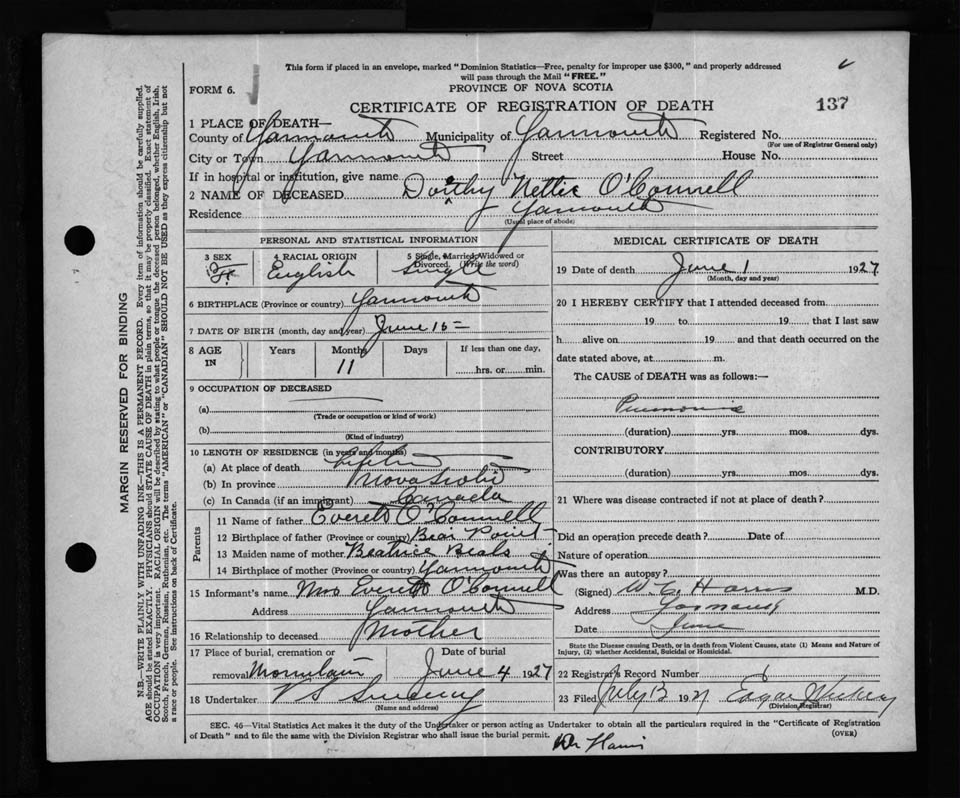 This form if placed in an envelope, marked "Dominion Statistics—Free, penalty for improper use $300," and properly addressed
will pass through the Mail "FREE."
FORM 6.
PROVINCE OF NOVA SCOTIA
CERTIFICATE OF REGISTRATION OF DEATH
137
1 PLACE OF DEATH—
County of Yarmouth Municipality of Yarmouth Registered No.
(For use of Registrar General only)
City or Town Yarmouth Street House No.
If in hospital or institution, give name
2 NAME OF DECEASED Dorithy Nettie O'Connell
Residence Yarmouth
(Usual place of abode)
PERSONAL AND STATISTICAL INFORMATION
3 SEX F. 4 RACIAL ORIGIN English 5 Single, Married, Widowed or Divorced. (Write the word) Single
6 BIRTHPLACE (Province or country) Yarmouth
7 DATE OF BIRTH (month, day and year) June 15
8 AGE IN Years Months 11 Days If less than one day,
hrs. or min.
9 OCCUPATION OF DECEASED
(a)
(Trade or occupation or kind of work)
(b)
(Kind of industry)
10 LENGTH OF RESIDENCE (in years and months)
(a) At place of death
(b) In province Nova Scotia
(c) In Canada (if an immigrant) Canada
Parents
11 Name of father Everett O'Connell
12 Birthplace of father (Province or country) Bear Point
13 Maiden name of mother Beatrice Beals
14 Birthplace of mother (Province or country) Yarmouth
15 Informant's name Mrs Everett O'Connell
Address Yarmouth
16 Relationship to deceased Mother
17 Place of burial, cremation or Date of burial
removal June 4 1927
18 Undertaker V S Sweeny
(Name and address)
MEDICAL CERTIFICATE OF DEATH
19 Date of death June 1 1927
(Month, day and year)
20 I HEREBY CERTIFY that I attended deceased from
19 to 19 that I last saw
h alive on 19 and that death occurred on the
date stated above, at m.
The CAUSE of DEATH was as follows:—
Pneumonia
(duration) yrs. mos. dys.
CONTRIBUTORY
(duration) yrs. mos. dys.
21 Where was disease contracted if not at place of death?
Did an operation precede death? Date of
Nature of operation
Was there an autopsy?
(Signed) W. C. Harris M.D.
Address Yarmouth
Date June
State the Disease causing Death, or in death from Violent Causes, state (1) Means and Nature of
Injury, (2) whether Accidental, Suicidal or Homicidal.
22 Registrar's Record Number 1
23 Filed July 13 1927 Edgar
(Division Registrar)
SEC. 46—Vital Statistics Act makes it the duty of the Undertaker or person acting as Undertaker to obtain all the particulars required in the "Certificate of Registration
of Death" and to file the same with the Division Registrar who shall issue the burial permit.
(OVER)
Dr Harris
MARGIN RESERVED FOR BINDING
N.B.—WRITE PLAINLY WITH UNFADING INK—THIS IS A PERMANENT RECORD. Every item of information should be carefully supplied.
AGE should be stated EXACTLY. PHYSICIANS should STATE CAUSE OF DEATH in plain terms, so that it may be properly classified. Exact statement of
OCCUPATION is very important. RACIAL ORIGIN will be described by stating to what people or tongue the deceased person belonged, whether English, Irish,
Scotch, French, German, Russian, Ruthenian, etc. The terms "AMERICAN" or "CANADIAN" SHOULD NOT BE USED as they express citizenship but not
a race or people. See instructions on back of Certificate.